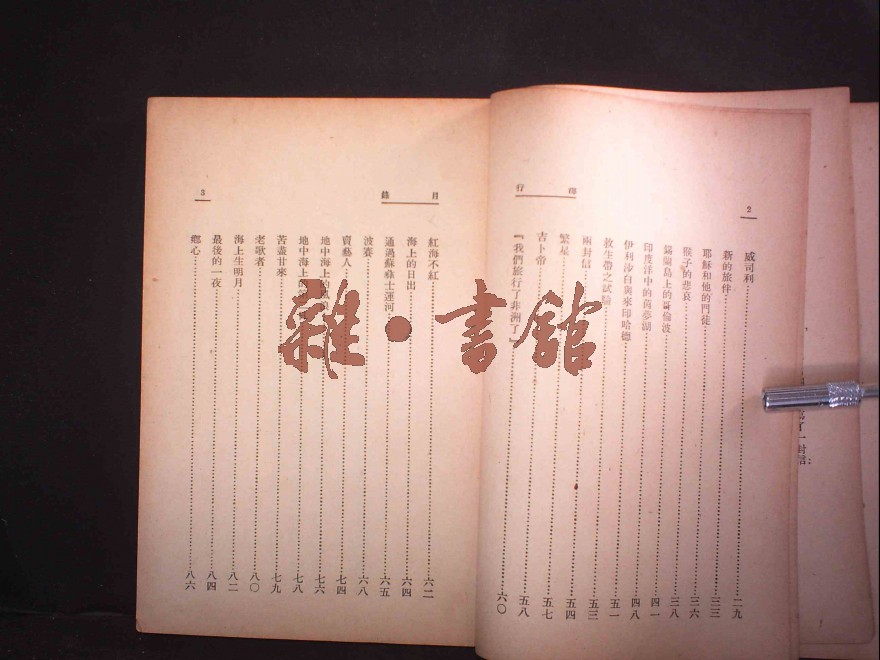 2
海行
威司利 二九
新的旅伴 三三
耶穌和他的門徒 三三
猴子的悲哀 三六
錫蘭島上的哥倫波 三八
印度洋中的茵夢湖 四一
伊利沙白與來印哈德 四八
救生帶之試驗 五一
兩封信 五三
繁星 五四
吉卜帝 五七
『我們旅行了非洲了』 六〇
目錄
3
紅海不紅 六二
海上的日出 六四
通過蘇彝士運河 六五
波賽 六八
賣藝人 七四
地中海上的風 七六
地中海上的 七八
苦盡甘來 七九
老歌者 八〇
海上生明月 八二
最後的一夜 八四
鄉心 八六
雜•書館